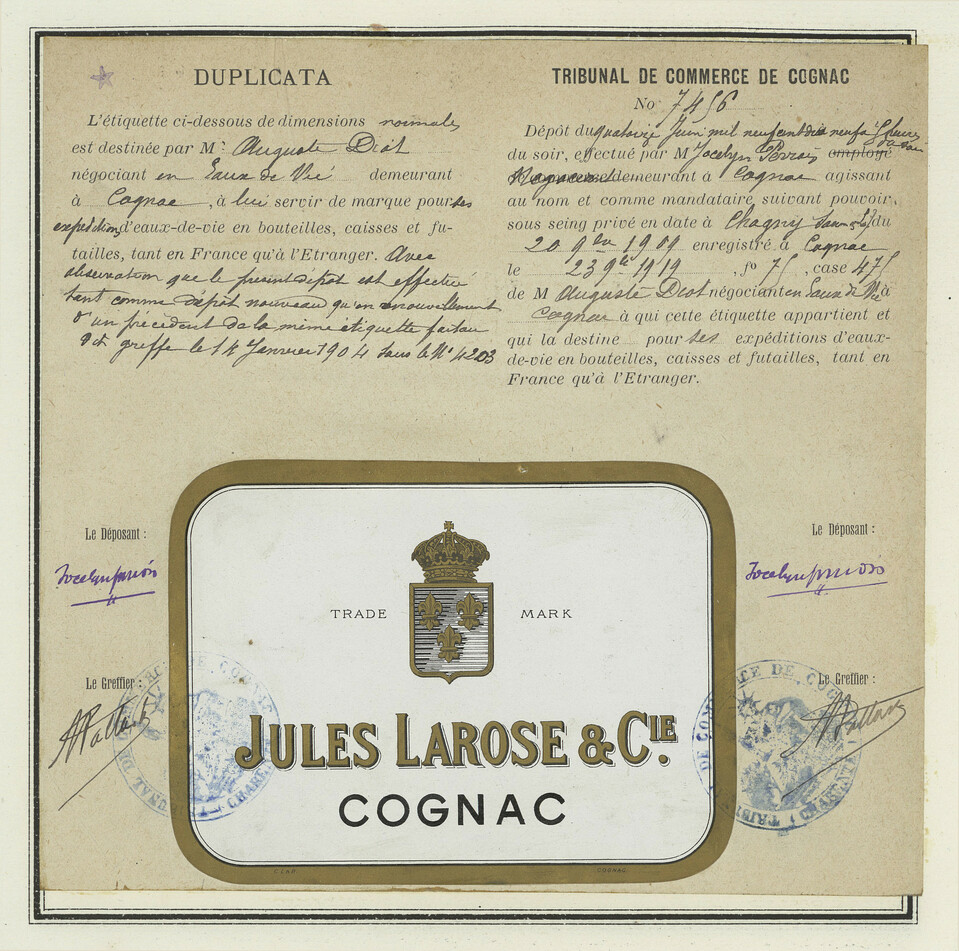 DUPLICATA
L'étiquette ci-dessous de dimensions normales
est destinée par Mr Auguste Diot
négociant en Eaux de Vie demeurant
à Cognac, à lui servir de marque pour ses
expéditions d'eaux-de-vie en bouteilles, caisses et fu-
tailles, tant en France qu'à l'Etranger. Avec
observation que le présent dépôt est effectué
tant comme dépôt nouveau qu'en renouvellement
d'un précédent de la même étiquette fait au
dit greffe le 14 Janvier 1904 sous le No 4203
TRIBUNAL DE COMMERCE DE COGNAC
No 7456
Dépôt du quatorze Juin mil neuf cent dix neuf à 5 heures
du soir, effectué par M Jocelyn employé
demeurant à Cognac agissant
au nom et comme mandataire, suivant pouvoir,
sous seing privé en date à Chagny du
20 9bre 1909 enregistré à Cognac
le 23 9bre 1919, fo 75, case 475
de M Auguste Diot négociant en Eaux de Vie à
Cognac à qui cette étiquette appartient et
qui la destine pour ses expéditions d'eaux-
de-vie en bouteilles, caisses et futailles, tant en
France qu'à l'Etranger.
Le Déposant :
Le Greffier :
Le Déposant :
Le Greffier :
TRADE MARK
JULES LAROSE & CIE.
COGNAC
COGNAC